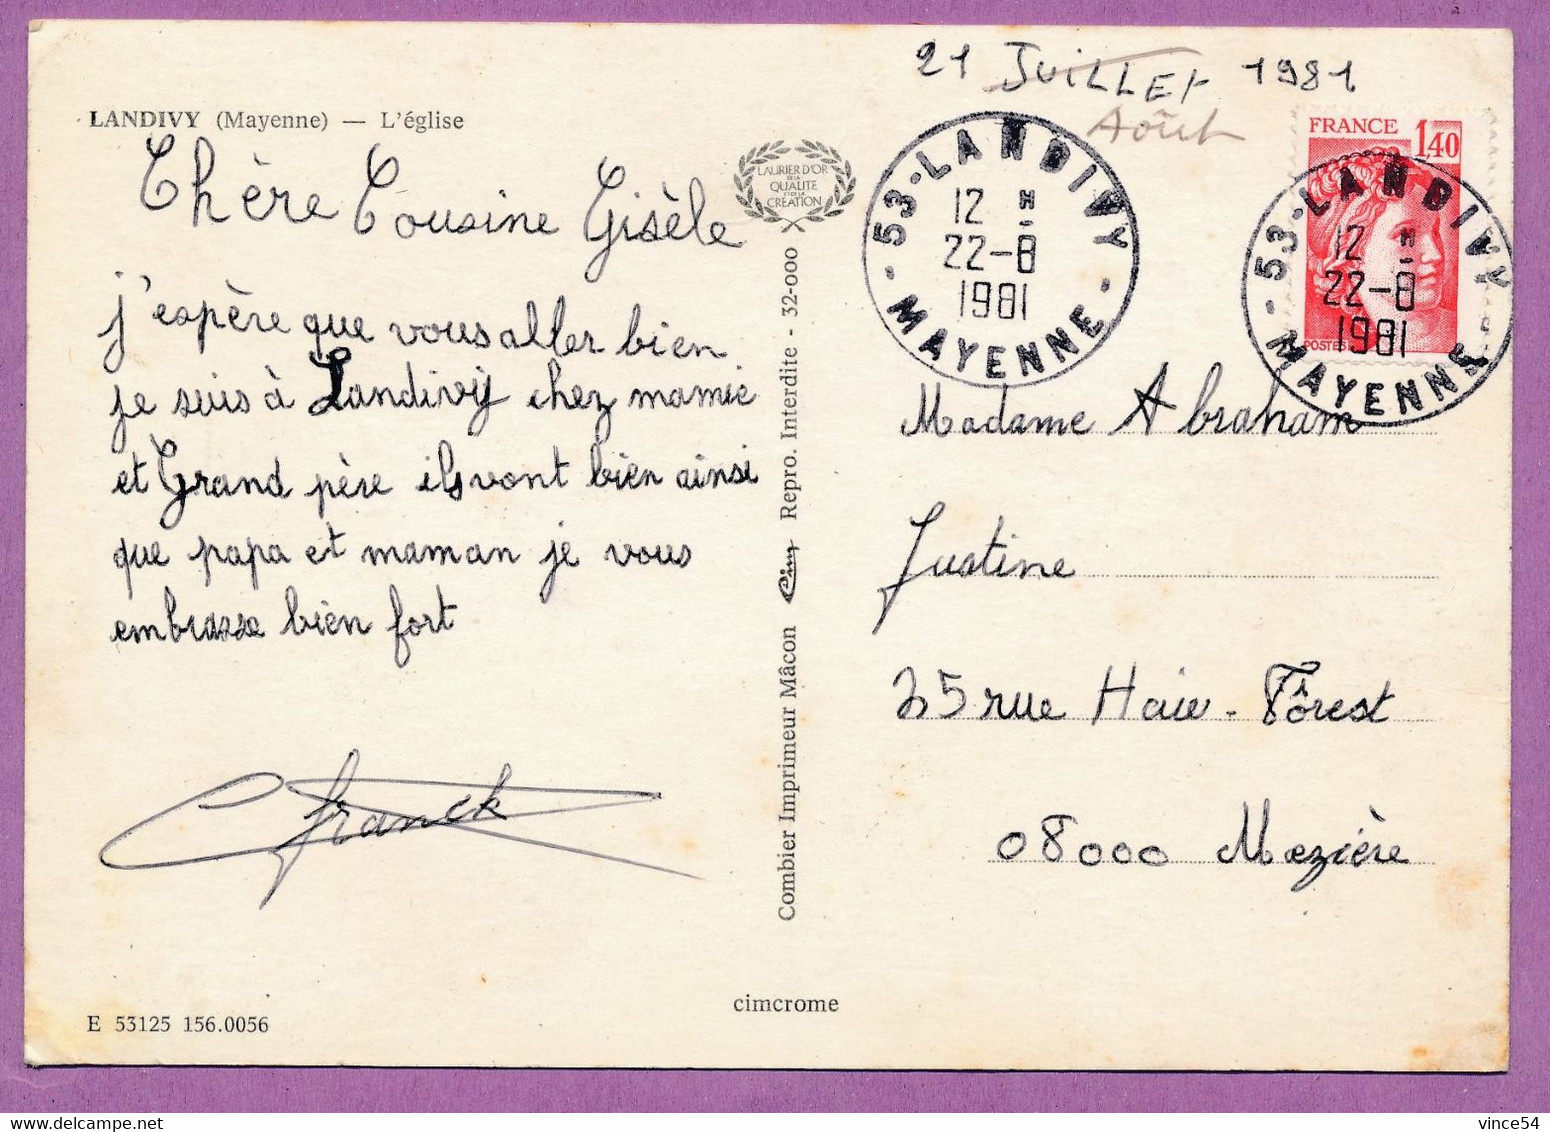 21 Juillet 1981
Août
LANDIVY (Mayenne) — L'église
Chère Cousine Gisèle
j'espère que vous aller bien
je suis à Landivy chez mamie
et Grand père ils vont bien ainsi
que papa et maman je vous
embrasse bien fort
Franck
E 53125 156.0056
LAURIER D'OR
DE LA
QUALITE
ET DE LA
CREATION
Combier Imprimeur Mâcon Cim Repro. Interdite - 32-000
cimcrome
53-LANDIVY
12 H
22-8
1981
- MAYENNE -
FRANCE 1,40
POSTES
53-LANDIVY
12 H
22-8
1981
- MAYENNE -
Madame Abraham
Justine
25 rue Haie-Fôrest
08000 Mezière
vince54